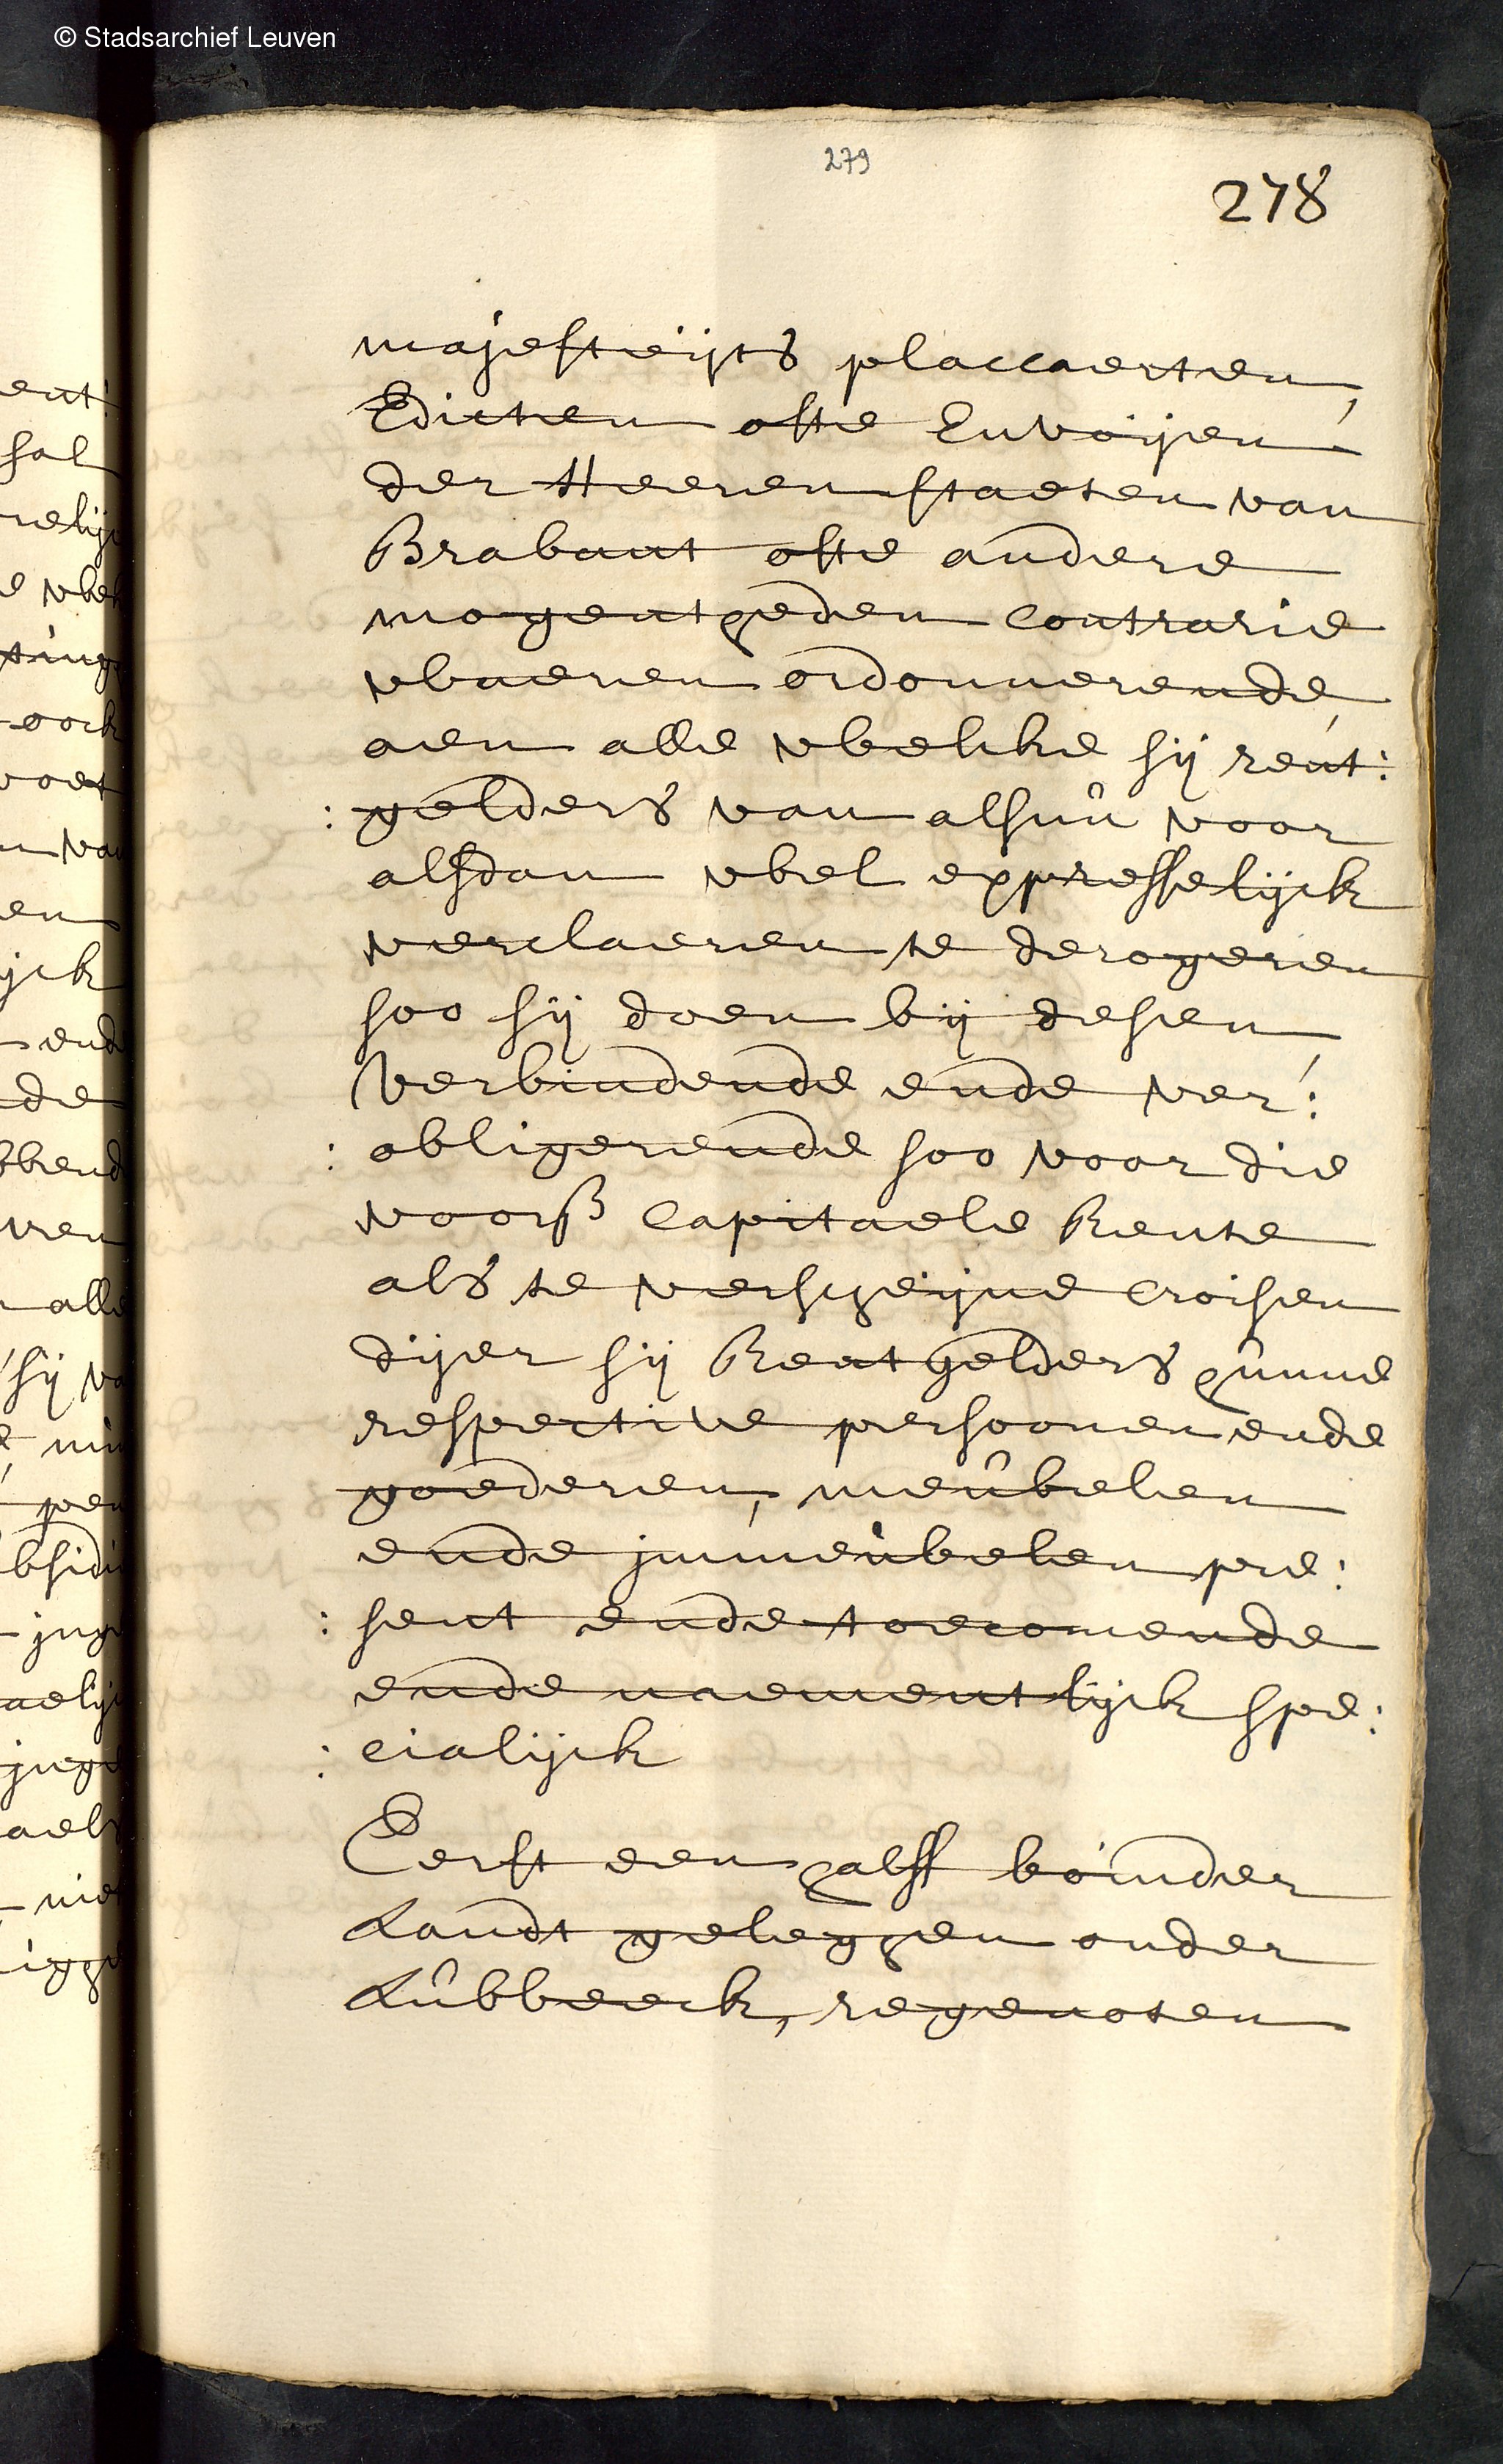 © Stadsarchief Leuven
279
278
majesteijts placcaerten,
Edicten ofte Envoijen
der Heeren staeten van
Brabant ofte andere
mogentheden contrarie
waeren ordonnerende,
aen alle welcke sij rent:
:gelders van alsnu voor
alsdan wel expresselijck
verclaeren te derogeren
soo sij doen bij desen
Verbindende ende ver:
:obligerende soo voor die
voors capitaele Rente
als te verscheijne croisen
dijer sij Rentgelders hunne
respective persoonen ende
goederen, meubelen
ende jmmeubelen pre:
:sent ende toecomende
ende naementlijck spe:
:cialijck
Eerst een halff boinder
Landt geleggen onder
Lubbeeck, regenoten